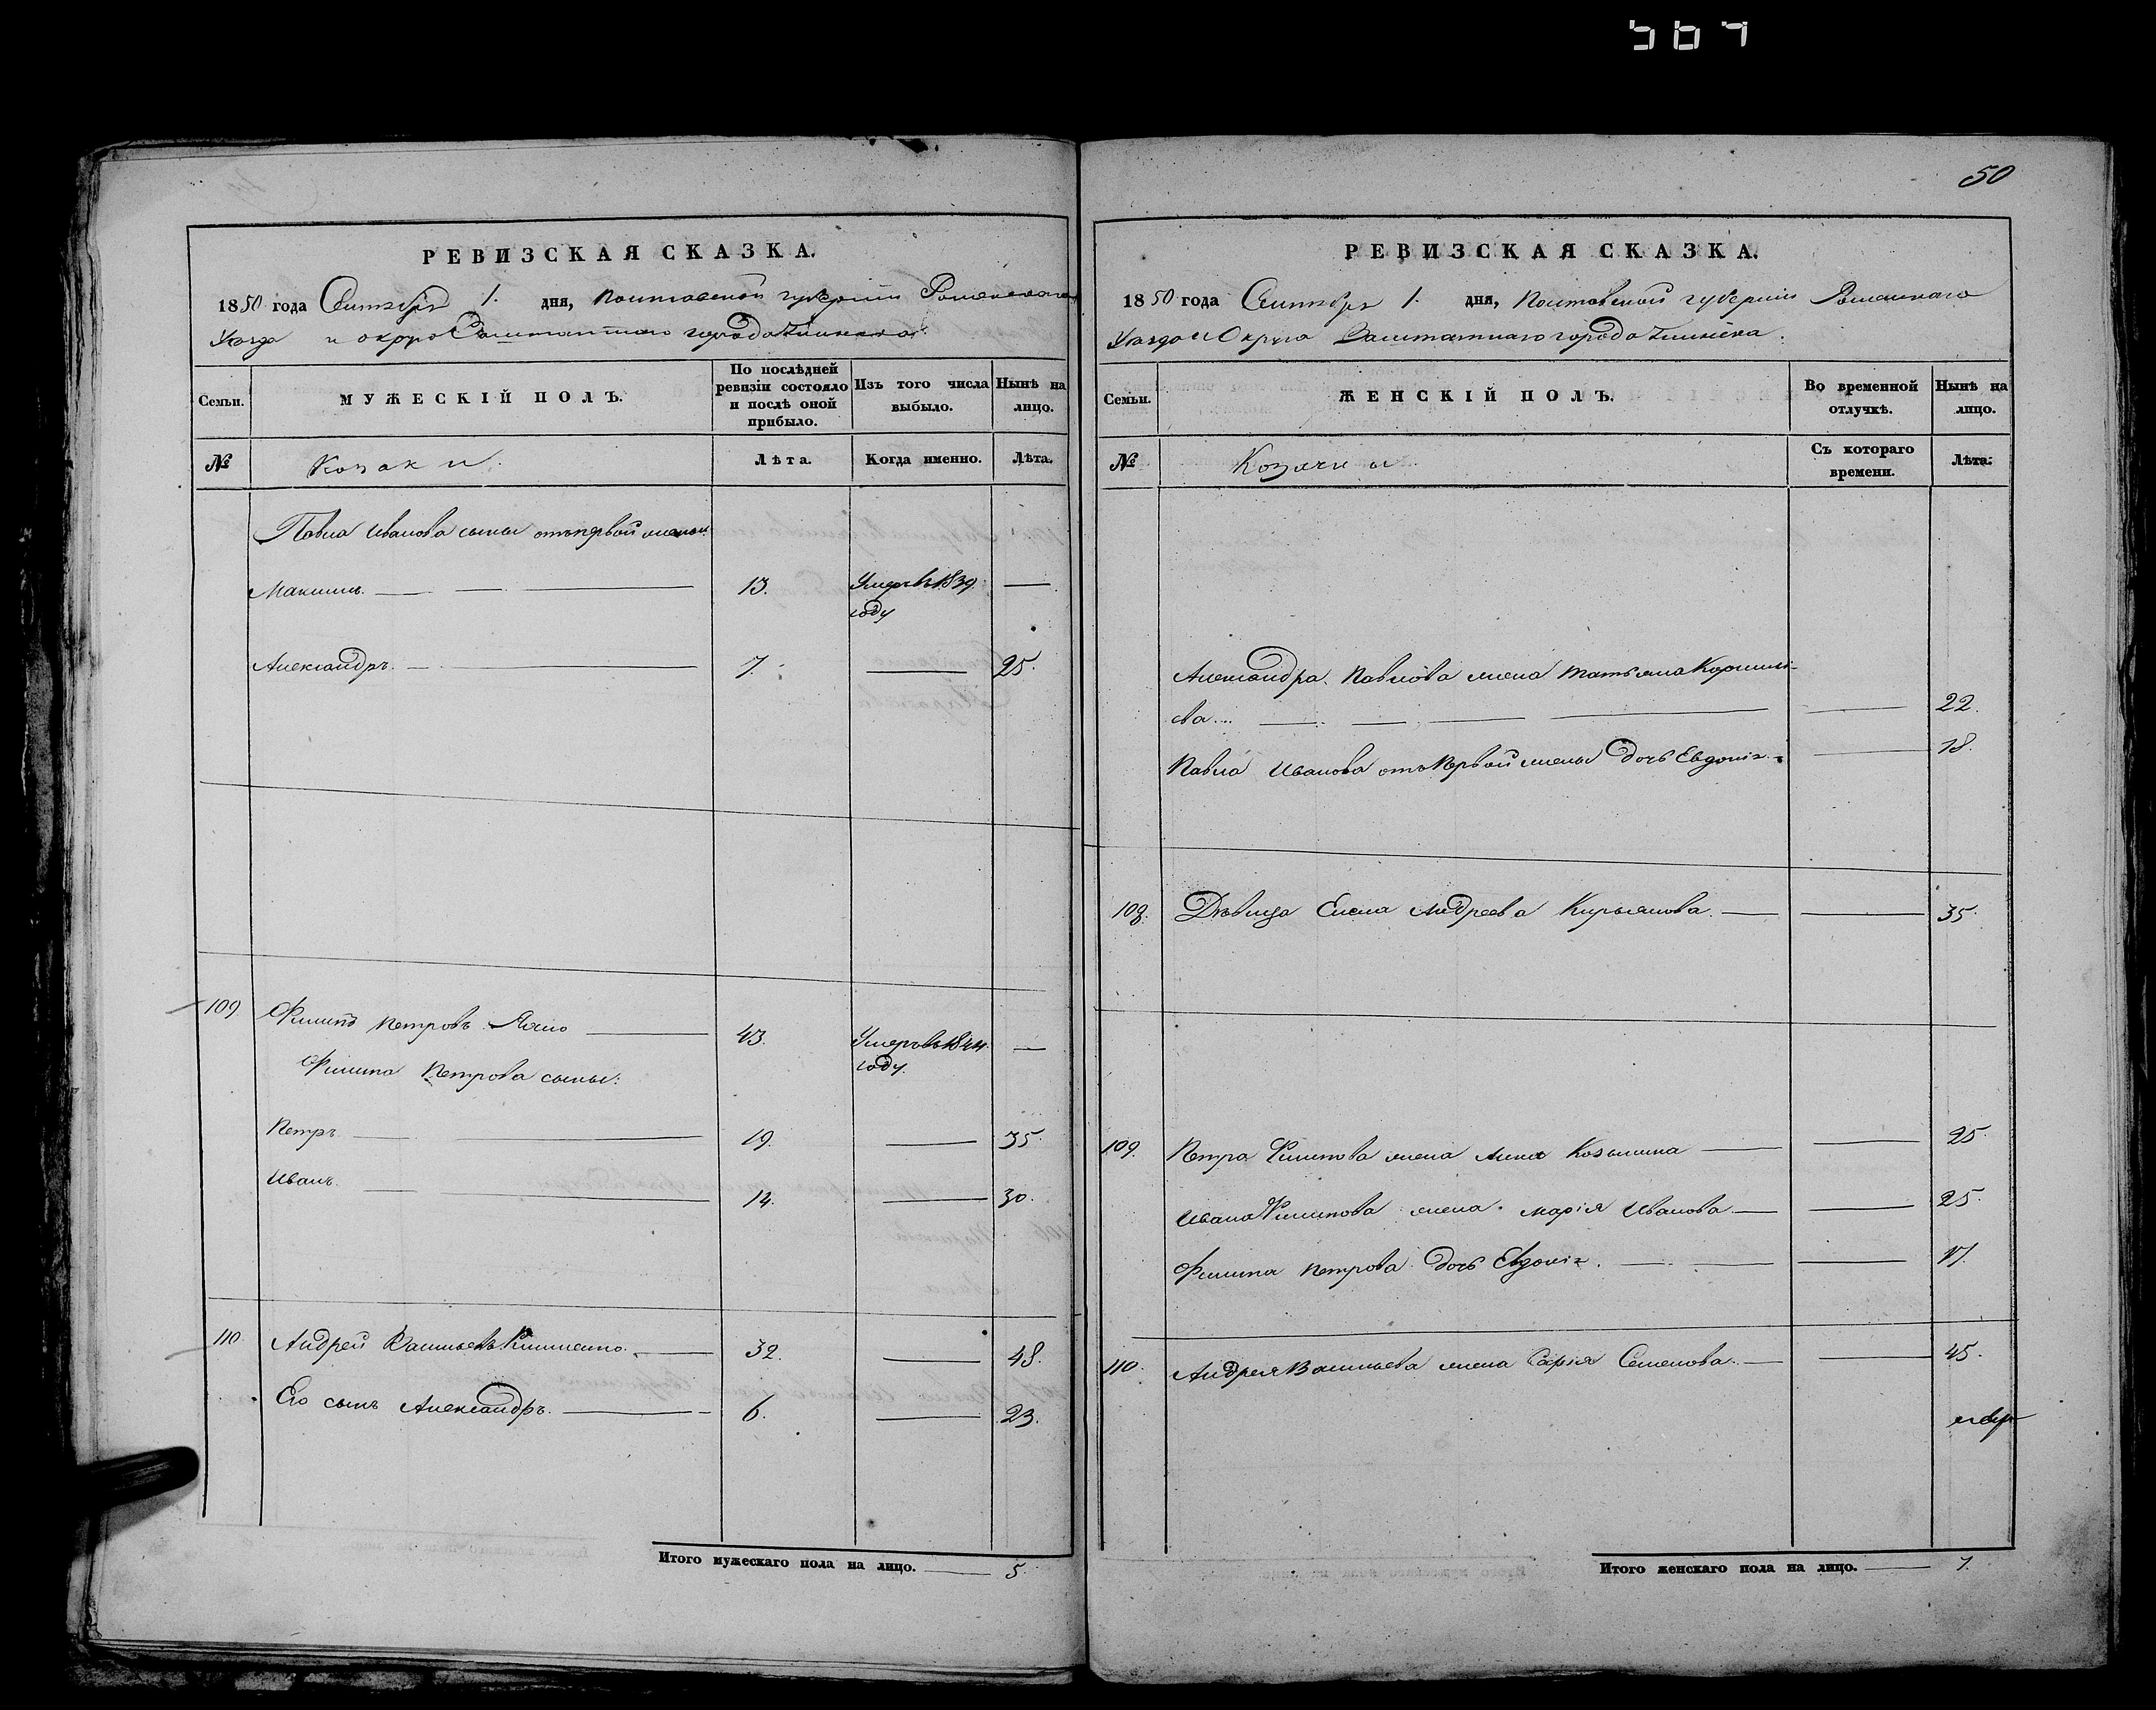 567
РЕВИЗСКАЯ СКАЗКА.
1850 года Сентября 1. дня, Полтавской губерніи Роменскаго
Уезда и округа Заштатнаго города Глинска
Семьи.
МУЖЕСКІЙ ПОЛЪ.
По послѣдней ревизіи состояло и послѣ оной прибыло.
Изъ того числа выбыло.
Нынѣ на лицо.
№
Козаки.
Лѣта.
Когда именно.
Лѣта.
Павла Иванова сыны отъ первой жены
Максимъ. 13. Умеръ въ 1839. году —
Александръ. 7. — 25.
109 Филипъ Петровъ 43. Умеръ въ 1844. году. —
Филипа Петрова сыны:
Петръ 19. — 35.
Иванъ. 14. — 30.
110 Андрей Васильевъ 32. — 48.
Его сынъ Александръ. 6. — 23.
Итого мужескаго пола на лицо. — 5.
50
РЕВИЗСКАЯ СКАЗКА.
1850 года Сентября 1. дня, Полтавской губерніи Роменскаго
Уезда и Округа Заштатнаго города Глинска.
Семьи.
ЖЕНСКІЙ ПОЛЪ.
Во временной отлучкѣ.
Нынѣ на лицо.
№
Козачки
Съ котораго времени.
Лѣта.
Александра Павлова жена Татьяна Корнильева — 22.
Павла Иванова отъ Первой жены дочь Евдокія — 18.
108. Дѣвица Елена Андреева Кирьянова. — 35.
109. Петра Филипова жена Анна Козьмина — 25.
Ивана Филипова жена Марія Иванова — 25.
Филипа Петрова дочь Евдокія. — 17.
110. Андрея Васильева жена Семенова. — 45.
Итого женскаго пола на лицо. — 7.